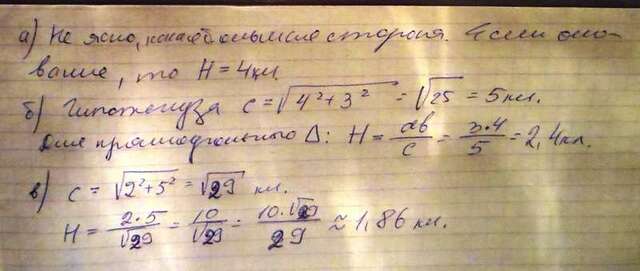 а) Не ясно, какая большие сторона. Если осно-
вание, то H = 4 кл
б) Гипотенуза c = √4²+3² = √25 = 5 кл.
Для прямоугольного Δ: H = ab/c = 3·4/5 = 2,4 кл.
в) c = √2²+5² = √29 кл.
H = 2·5/√29 = 10/√29 = 10·√29/29 ≈ 1,86 кл.